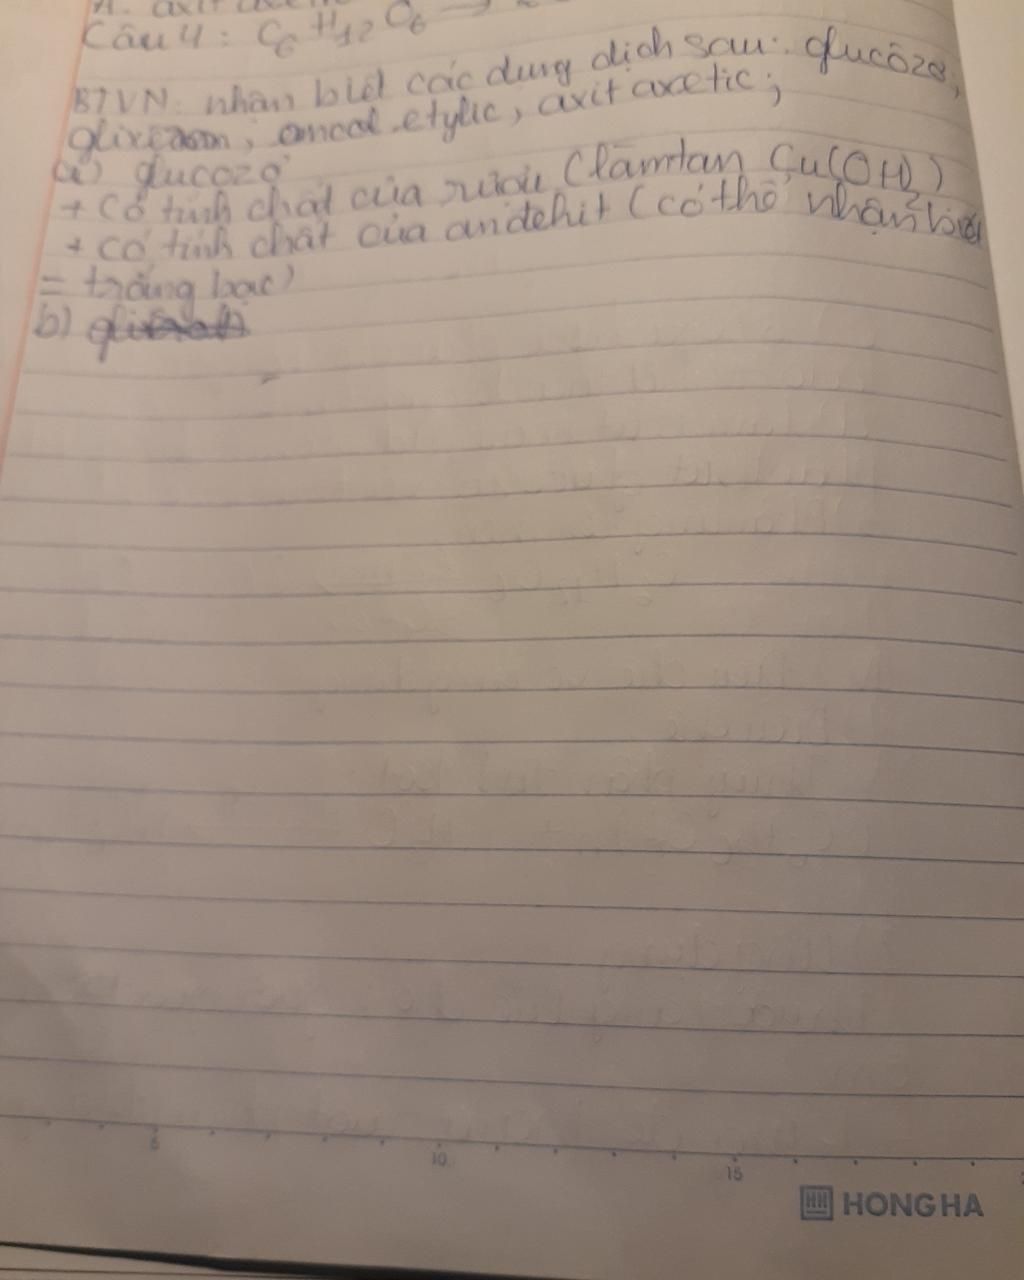 Câu 4: C6H12O6 →
BTVN: nhận biết các dung dịch sau: glucôzơ,
glixerom, ancol etylic, axit axetic;
a) glucozơ
+ Có tính chất của rượu (làm tan Cu(OH)2)
+ có tính chất của anđehit (có thể nhận biết
= tráng bạc)
b)
5 10 15
HH HONG HA